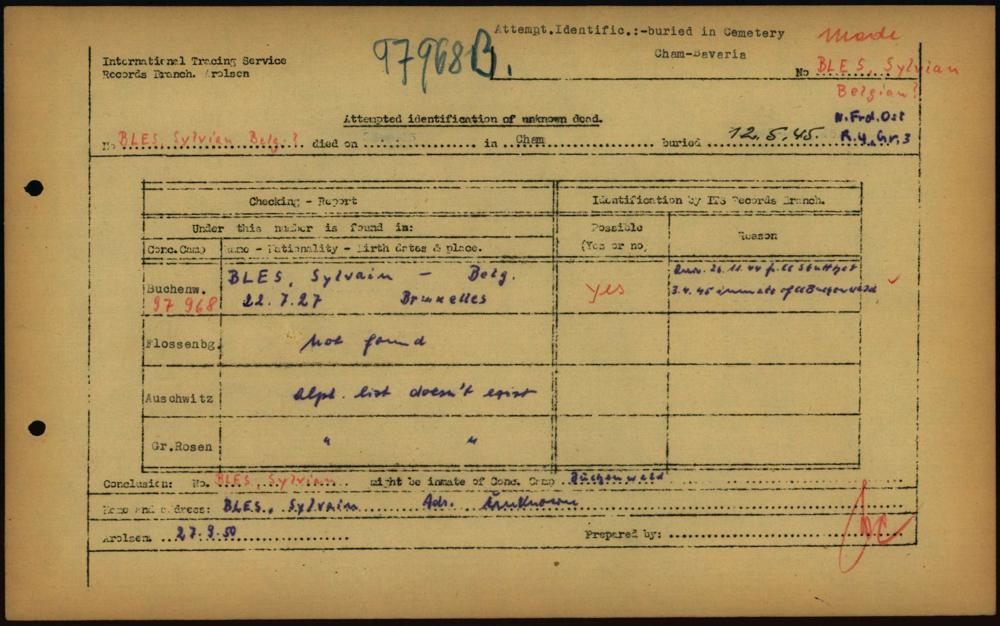 97968B.
Attempt.Identific.:-buried in Cemetery
Cham-Bavaria
Made
International Tracing Service
Records Branch. Arolsen
No BLES, Sylvian
Belgian?
Attempted identification of unknown dead.
N.Frd.Ost
R.4, Gr.3
No BLES, Sylvian Belg.? died on in Cham buried 12.5.45.
Checking - Report
Identification by ITS Records Branch.
Under this number is found in:
Possible
(Yes or no)
Reason
Conc.Camp
Name - Nationality - Birth dates & place.
Buchenw.
97 968
BLES, Sylvain - Belg.
22.7.27 Bruxelles
yes
26.11.44
3.4.45 inmate of
Flossenbg.
not found
Auschwitz
alph. list doesn't exist
Gr.Rosen
" "
Conclusion: No. BLES, Sylvian might be inmate of Conc. Camp Buchenwald
Name and address: BLES, Sylvain Adr. unknown
Arolsen. 27.9.50
Prepared by: